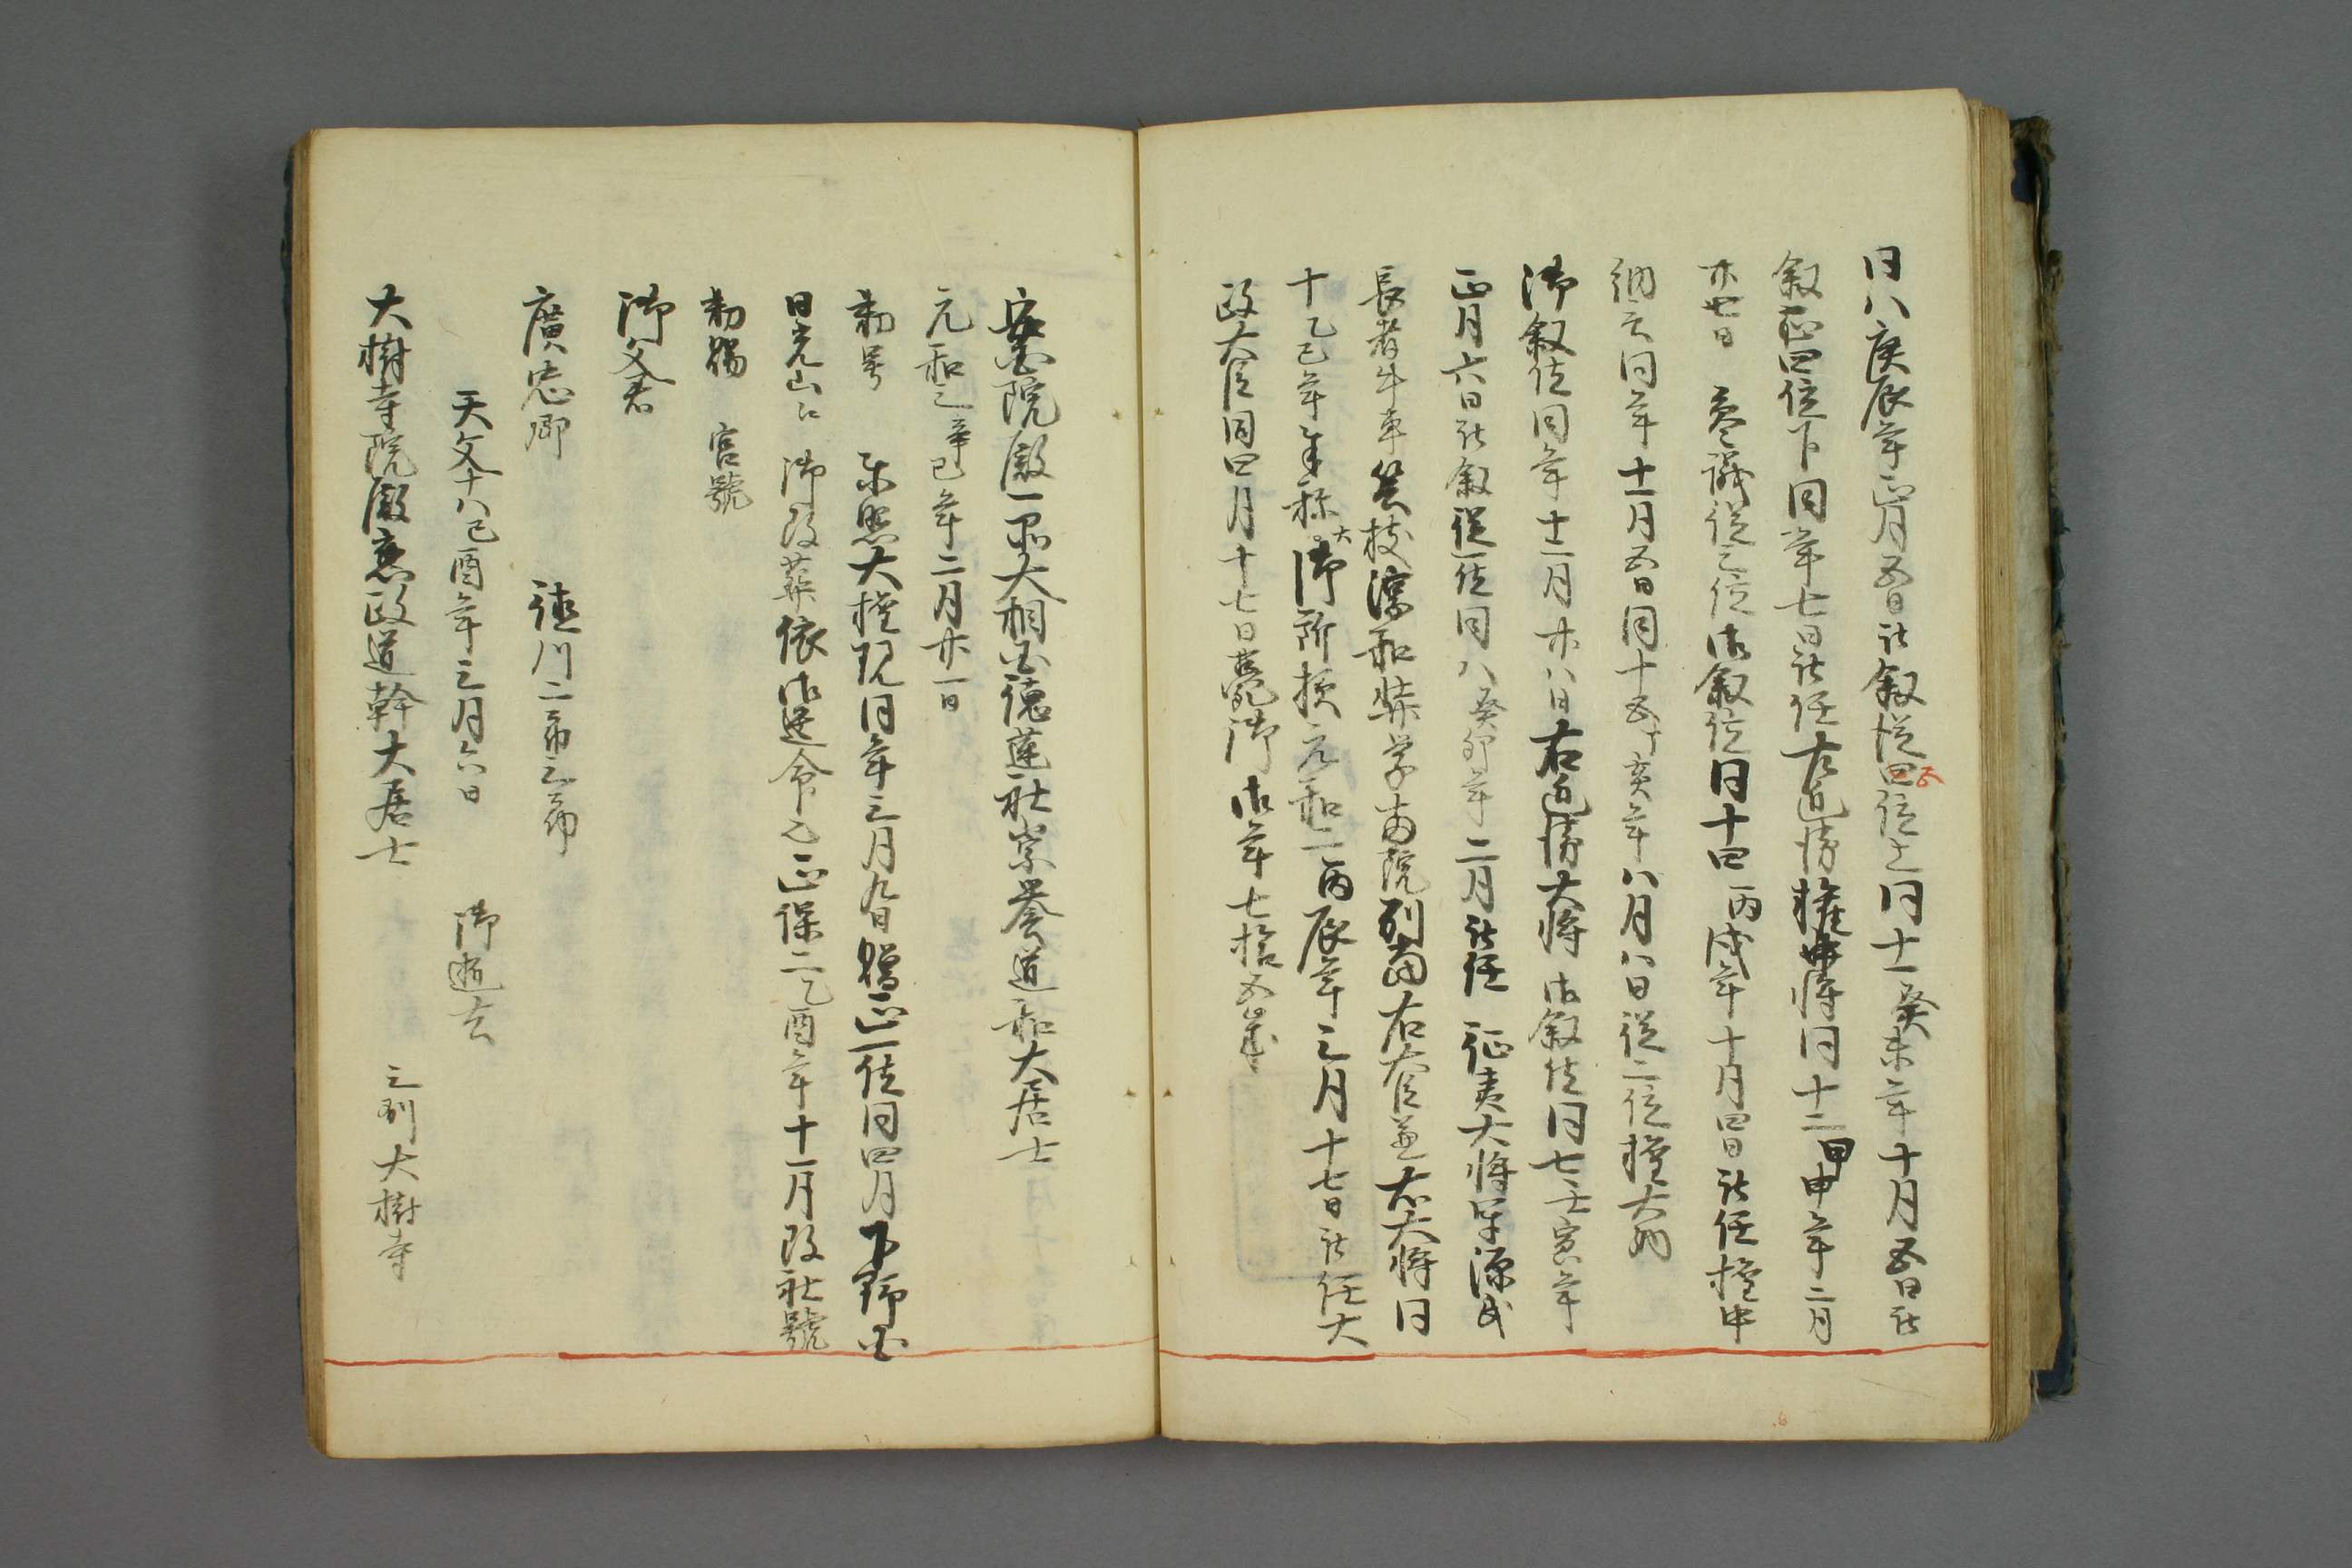 同八庚辰年正月五日被叙従四位上同十一癸未年十月五日被
五
叙正四位下同年七日被任左近衛権中将同十二甲申年二月
廿七日 参議従三位御叙位同十四丙戌年十月四日被任権中
納言同年十一月五日同十五丁亥年八月八日従二位権大納
御叙位同年十二月廿八日右近衛大将御叙位同七壬寅年
正月六日被叙従一位同八癸卯年二月被任 征夷大将軍源氏
長者牛車兵杖淳和奨学両院別當右大臣兼右大将同
十乙巳年奉称大御所様元和二丙辰年三月十七日被任大
政大臣同四月十七日薨御 御年七拾五歳
安國院殿一品大相国徳蓮社崇誉道和大居士
元和三辛巳年二月廿一日
勅号 東照大権現同年三月九日贈正一位同四月下野国
日光山江 御改葬依御遺命也正保二乙酉年十一月改社號
勅賜 宮號
御父君
廣忠卿 徳川二郎三郎
天文十八己酉年三月六日 御逝去
大樹寺院殿應政道幹大居士 三州大樹寺